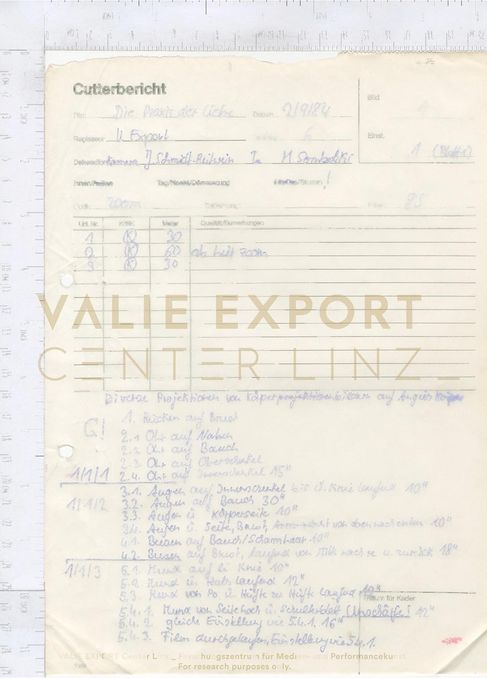 Cutterbericht
Titel Die Praxis der Liebe Datum 2/9/84
Bild
Regisseur V. Export 6
Einst. 1 (Blatt 1)
Kamera J. Schmidt-Reitwein Ton M
Innen/
Zoom 25
Lfd. Nr. Kritik Meter Qualität/Bemerkungen
1 (K) 30
2 (K) 60 ab 
3 (K) 30
VALIE EXPORT
CENTER LINZ_
Diverse Projektionen von auf Angies Körper
G! 1. Rücken auf Brust
2.1 Ohr auf Nabel
2.2 Ohr auf Bauch
2.3 Ohr auf Oberschenkel
1/1/1 2.4. Ohr auf Innenschenkel 15"
3.1. Augen auf Innenschenkel bis ü. Knie laufend 10"
1/1/2 3.2. Augen auf Bauch 30"
3.3. Augen ü Körperseite 10"
3.4. Augen ü. Seite, Brust, von oben nach unten 10"
4.1. Busen auf Bauch/Schamhaar 10"
4.2. Busen auf Brust, laufend von Mitte nach re u. zurück 18"
1/1/3 5.1. Mund auf li Knie 10"
5.2. Mund ü. Hals laufend 12"
5.3. Mund von Po ü Hüfte zu Hüfte laufend 10"
Raum für Kader
5.4.1. Mund von Seite hoch ü. Schulterblatt (Unschärfe!) 12"
5.4.2. gleiche Einstellung wie 5.4.1. 16"
5.4.3. Film durchgelaufen, Einstellung wie 5.4.1.
VALIE EXPORT Center Linz_ Forschungszentrum für Medien- und Performancekunst
For research purposes only.